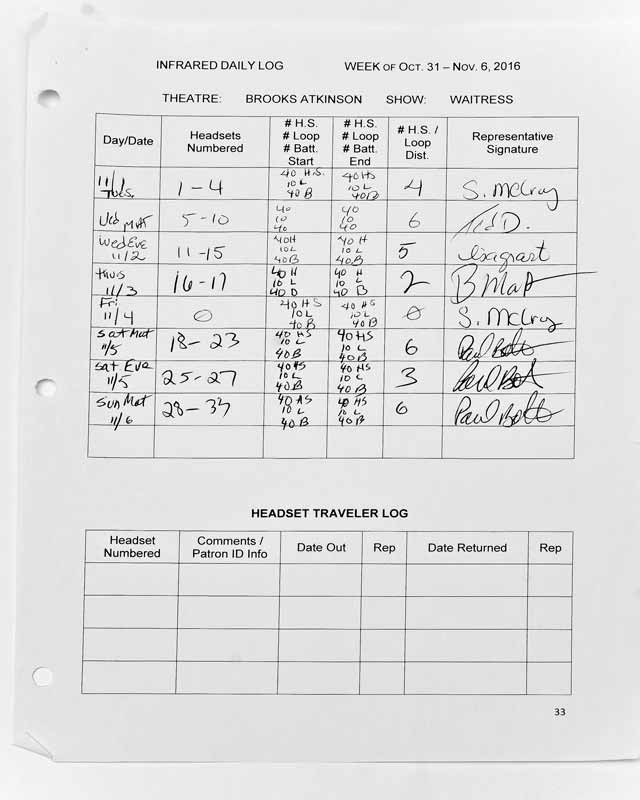 INFRARED DAILY LOG WEEK OF OCT. 31 – NOV. 6, 2016
THEATRE: BROOKS ATKINSON SHOW: WAITRESS
Day/Date
Headsets Numbered
# H.S. # Loop # Batt. Start
# H.S. # Loop # Batt. End
# H.S. / Loop Dist.
Representative Signature
11/1 Tues. 1-4 40 H.S. 10 L 40 B 40 HS 10 L 40 B 4 S. McIroy
Wed Mat 5-10 40 10 40 40 10 40 6
Wed Eve 11/2 11-15 40H 10L 40B 40 H 10 L 40B 5
Thus 11/3 16-17 40 H 10 L 40 B 40 H 10 L 40 B 2 B Map
Fri 11/4 0 40 HS 10L 40B 40 HS 10 L 40 B 0 S. McIroy
Sat Mat 11/5 18-23 40 HS 10 L 40B 40 HS 10 L 40B 6 Paul Bott
Sat Eve 11/5 25-27 40HS 10 L 40B 40 HS 10 L 40B 3 Paul Bott
Sun Mat 11/6 28-33 40 HS 10 L 40 B 40 HS 10 L 40 B 6 Paul Bott
HEADSET TRAVELER LOG
Headset Numbered
Comments / Patron ID Info
Date Out
Rep
Date Returned
Rep
33